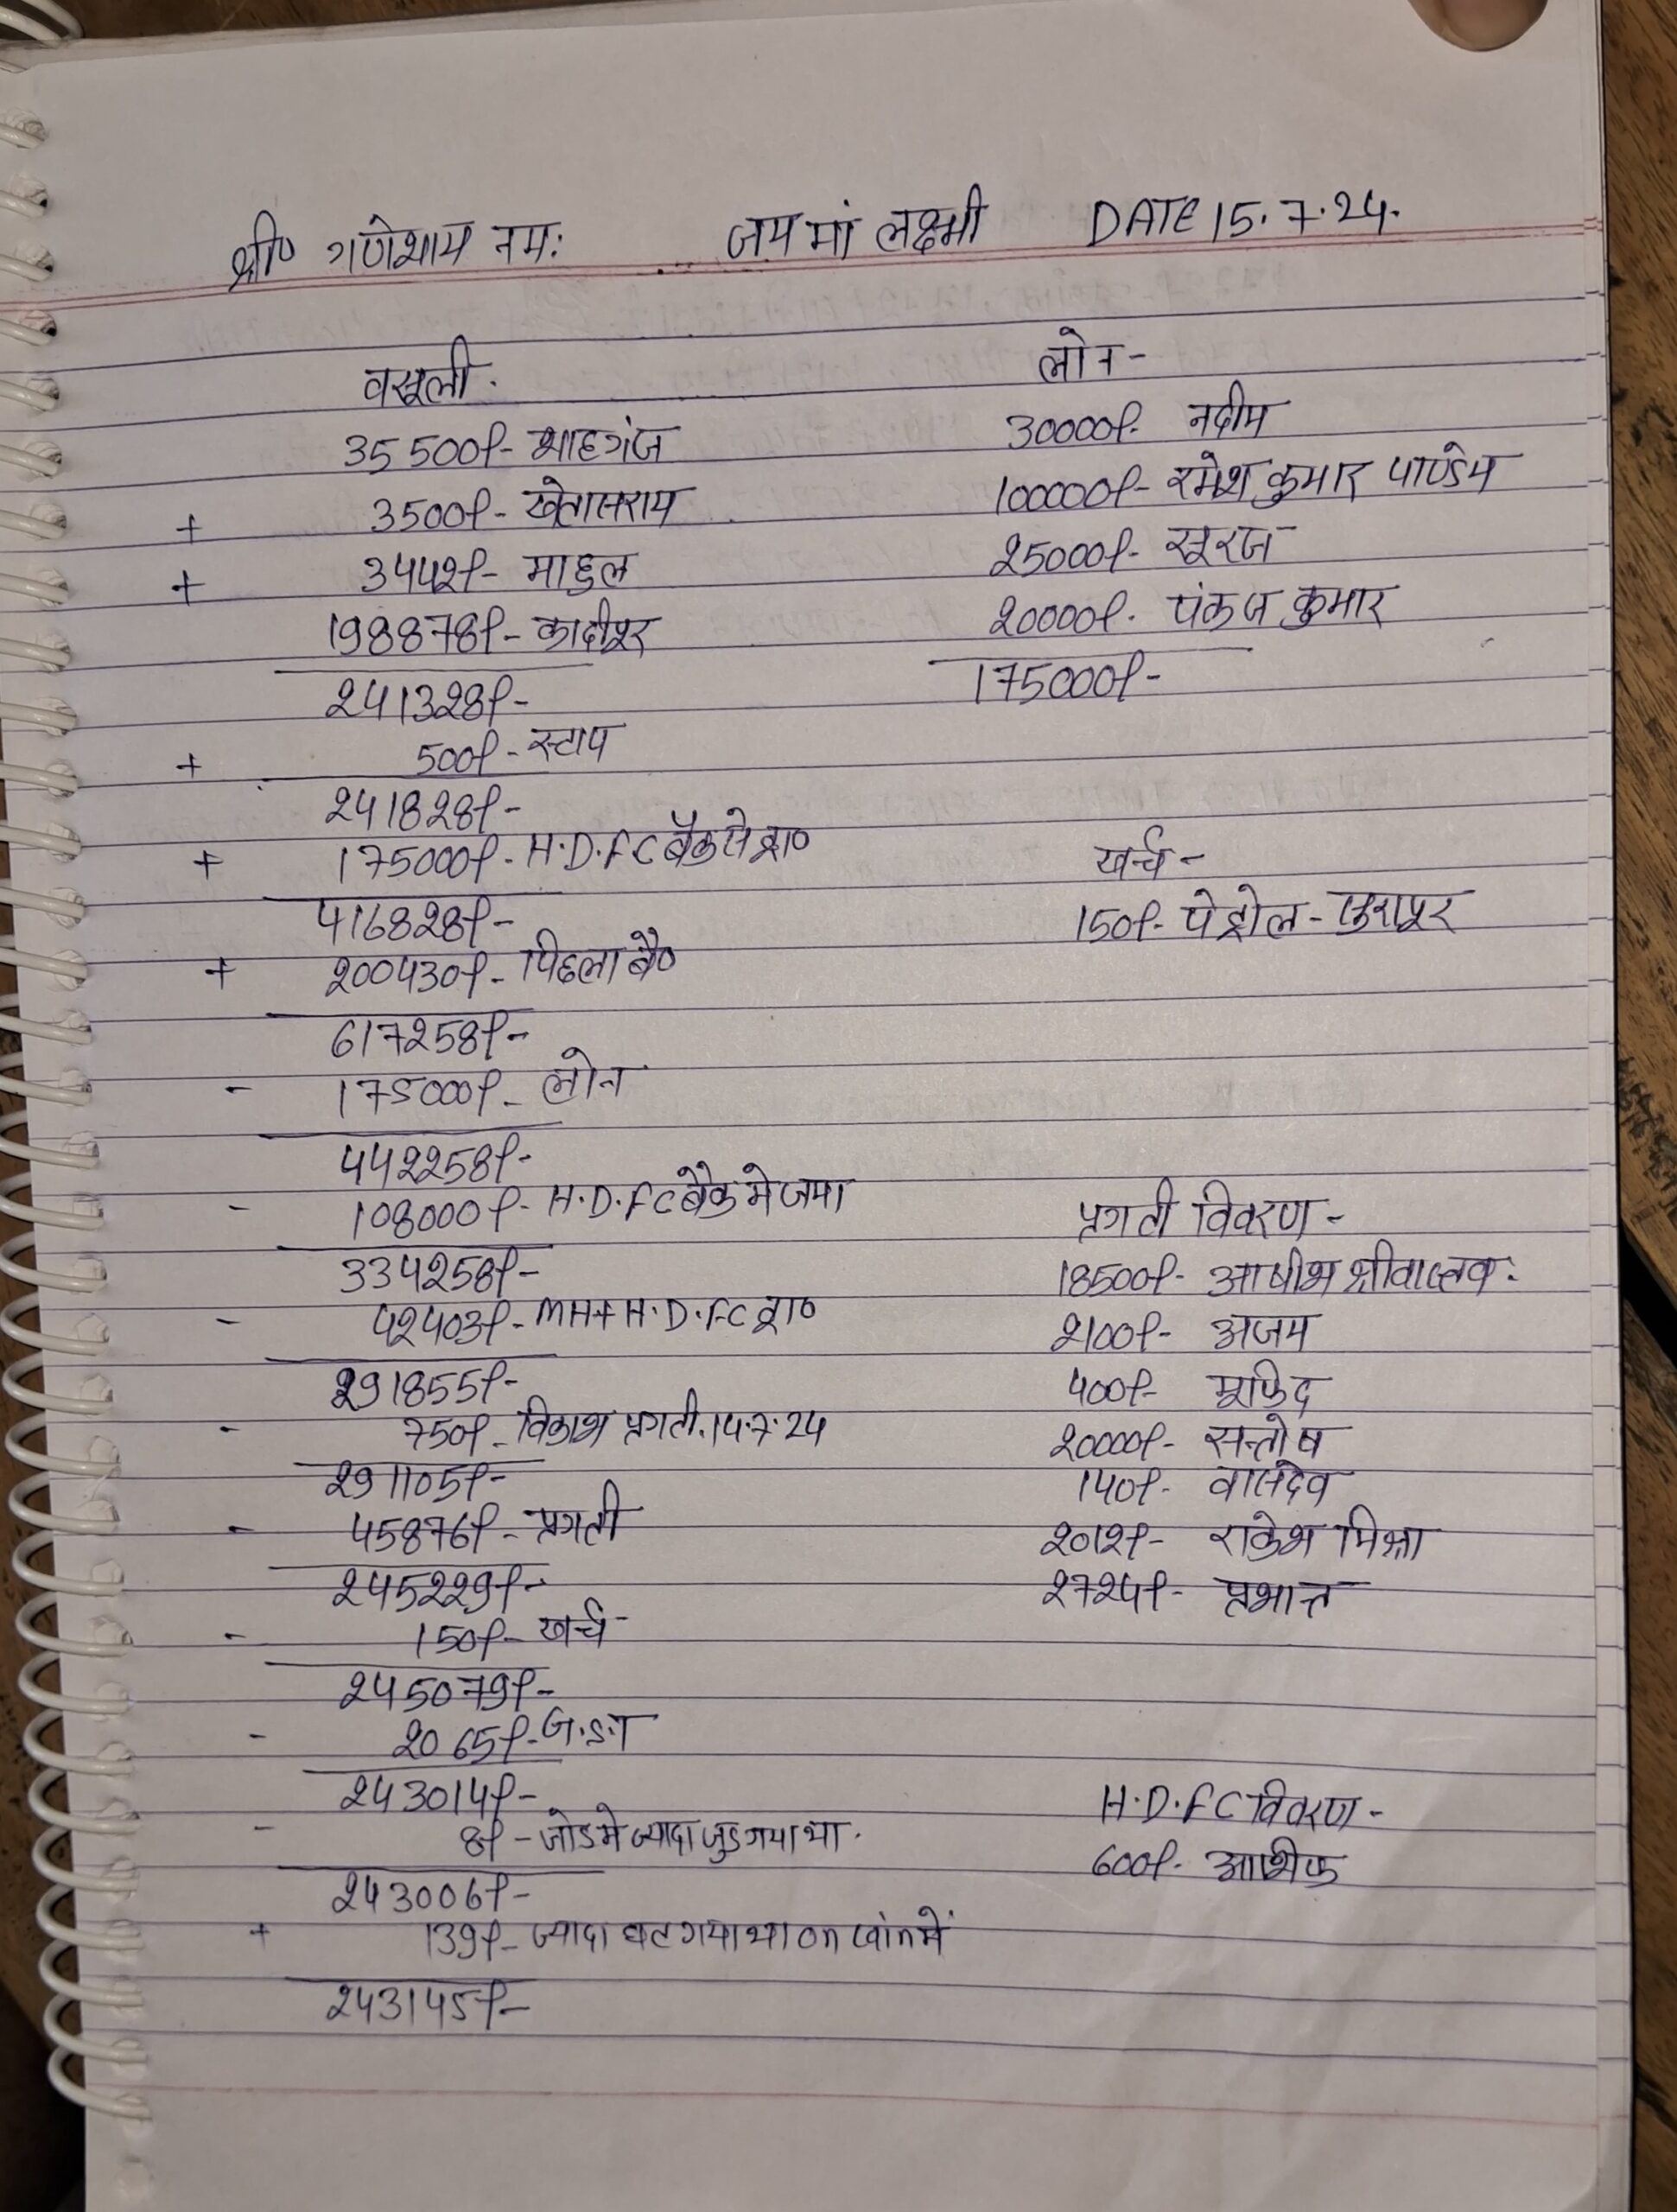 श्री० गणेशाय नमः जय मां लक्ष्मी DATE 15.7.24.
वसूली.
35500/- शाहगंज
+ 3500/- खेतासराय
+ 3442/- माहुल
198878/- कादीपुर
241328/-
+ 500/- स्टाप
241828/-
+ 175000/- H.D.FC बैंक से प्रा०
416828/-
+ 200430/- पिछला बै०
617258/-
- 175000/- लोन
442258/-
- 108000/- H.D.FC बैंक मे जमा
334258/-
- 42403/- MH+H.D.FC प्रा०
291855/-
- 750/- विकाश प्रगती.14.7.24
291105/-
- 45876/- प्रगती
245229/-
- 150/- खर्च
245079/-
- 2065/- G.S.T
243014/-
- 8/- जोड मे ज्यादा जुड गया था.
243006/-
+ 139/- ज्यादा घट गया था on लांन में
243145/-
लोन-
30000/- नदीम
100000/- रमेश कुमार पाण्डेय
25000/- सूरज
20000/- पंकज कुमार
175000/-
खर्च-
150/- पेट्रोल-
प्रगती विवरण-
18500/- आषीश श्रीवास्तव.
2100/- अजय
400/- मूफिद
20000/- सन्तोष
140/- वासदेव
2012/- राकेश मिश्रा
2724/- प्रभात
H.D.FC विवरण-
600/- आशीक